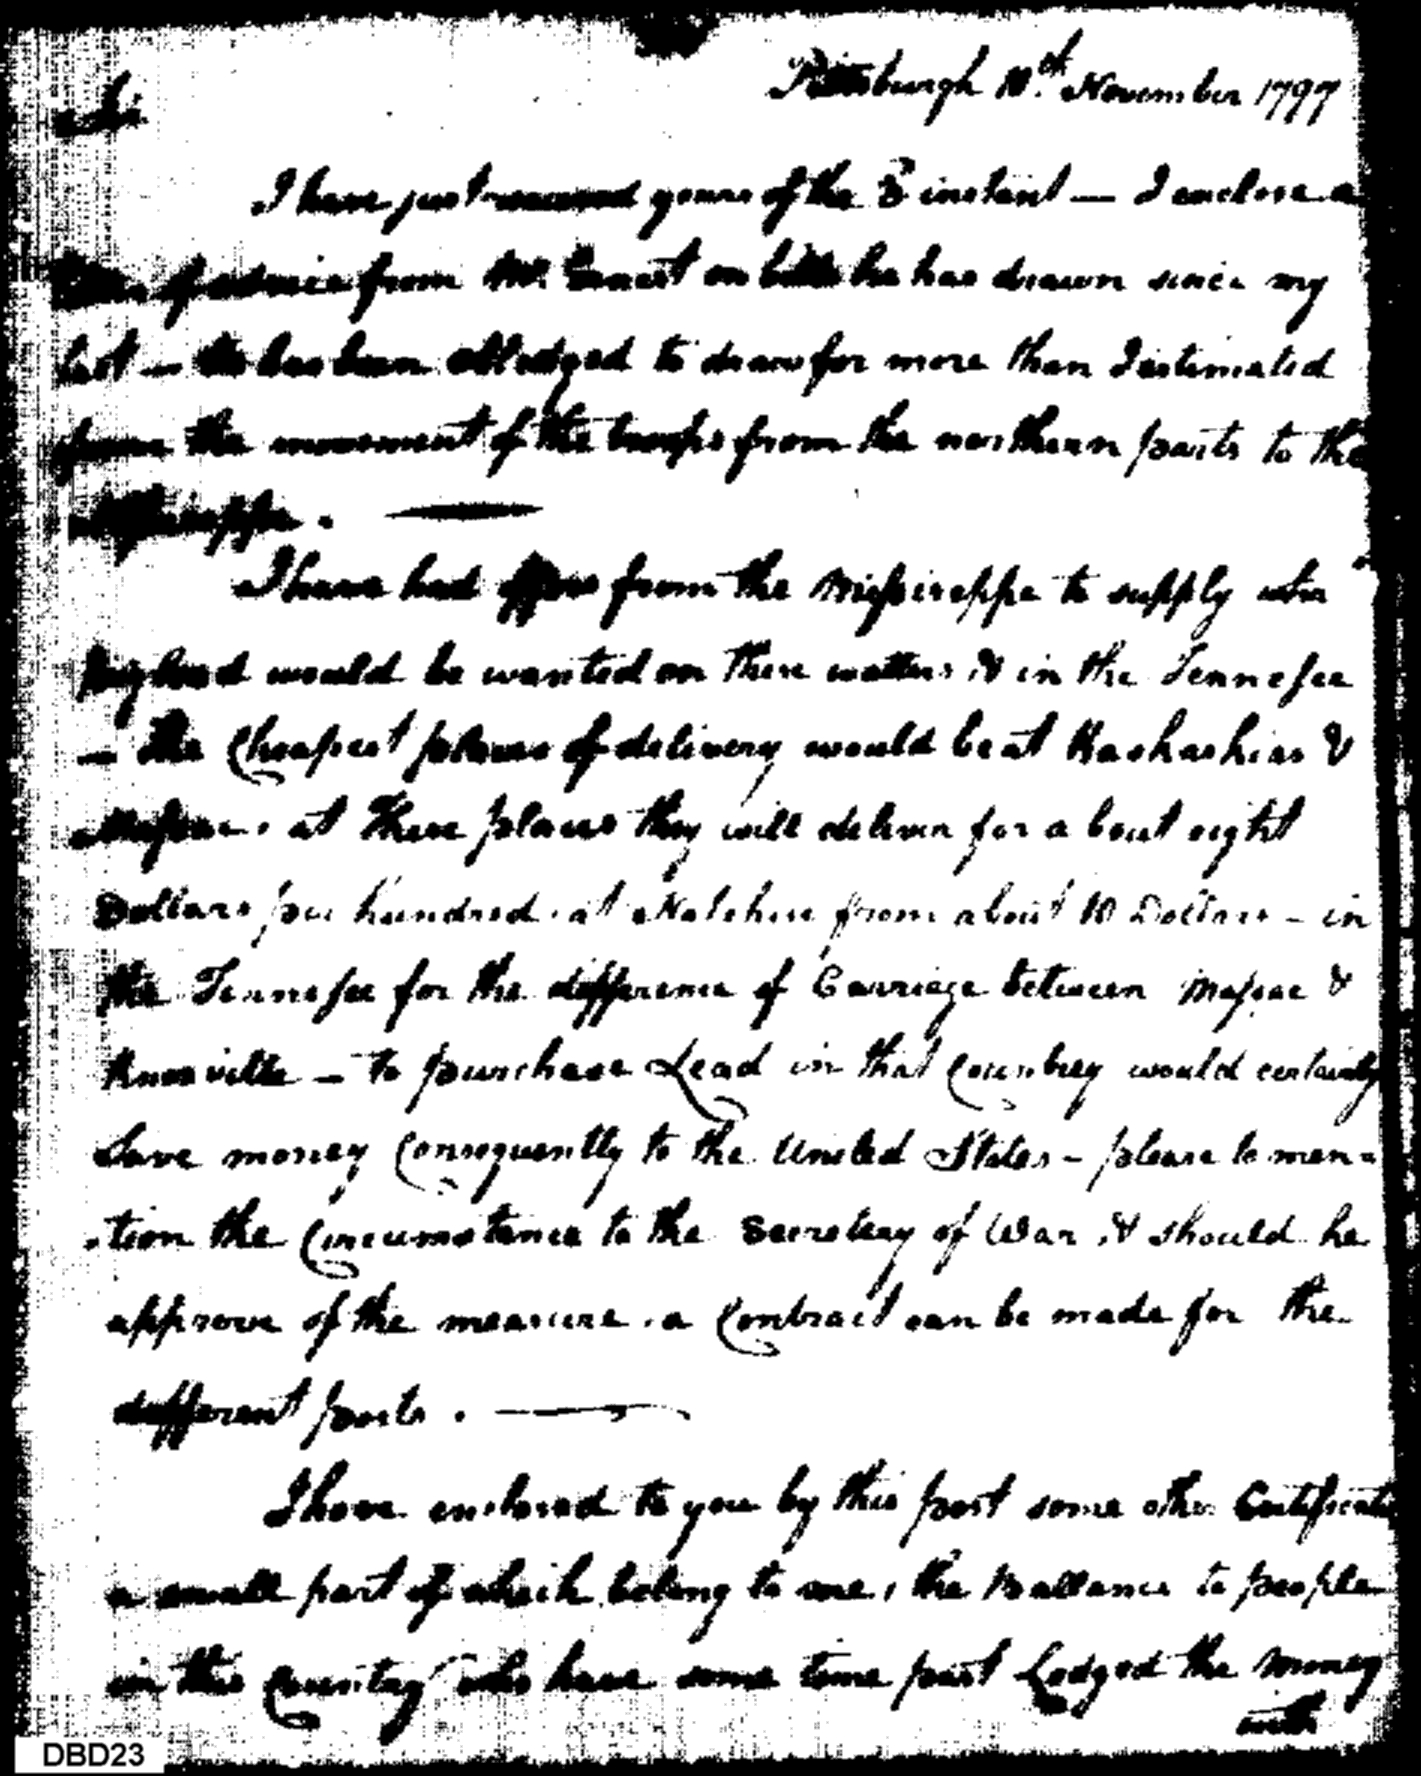 Pittsburgh 10th. November 1797
Sir
I have just received yours of the 3d instant — I enclose a
of advice from Mr. Ernest on bills he has drawn since my
last — He has been obledged to draw for more than I estimated
from the movement of the troops from the northern parts to the
Missisippe.
I have had offers from the Missisippe to supply
lead would be wanted on these watters & in the Tennessee
— The Cheapest places of delivery would be at Kaskaskias &
Massac, at these places they will deliver for about eight
Dollars per hundred, at Natchez from about 10 Dollars — in
the Tennessee for the difference of Carriage between Massac &
Knoxville — to purchase Lead in that Countrey would certainly
Save money Consequently to the United States — please to men=
=tion the Circumstance to the Secretary of War & should he
approve of the measure, a Contract can be made for the
different posts.
I have enclosed to you by this post some other Certificates
a small part of which belong to me, the Ballance to people
in this Country who have some time past Lodged the money
with
DBD23